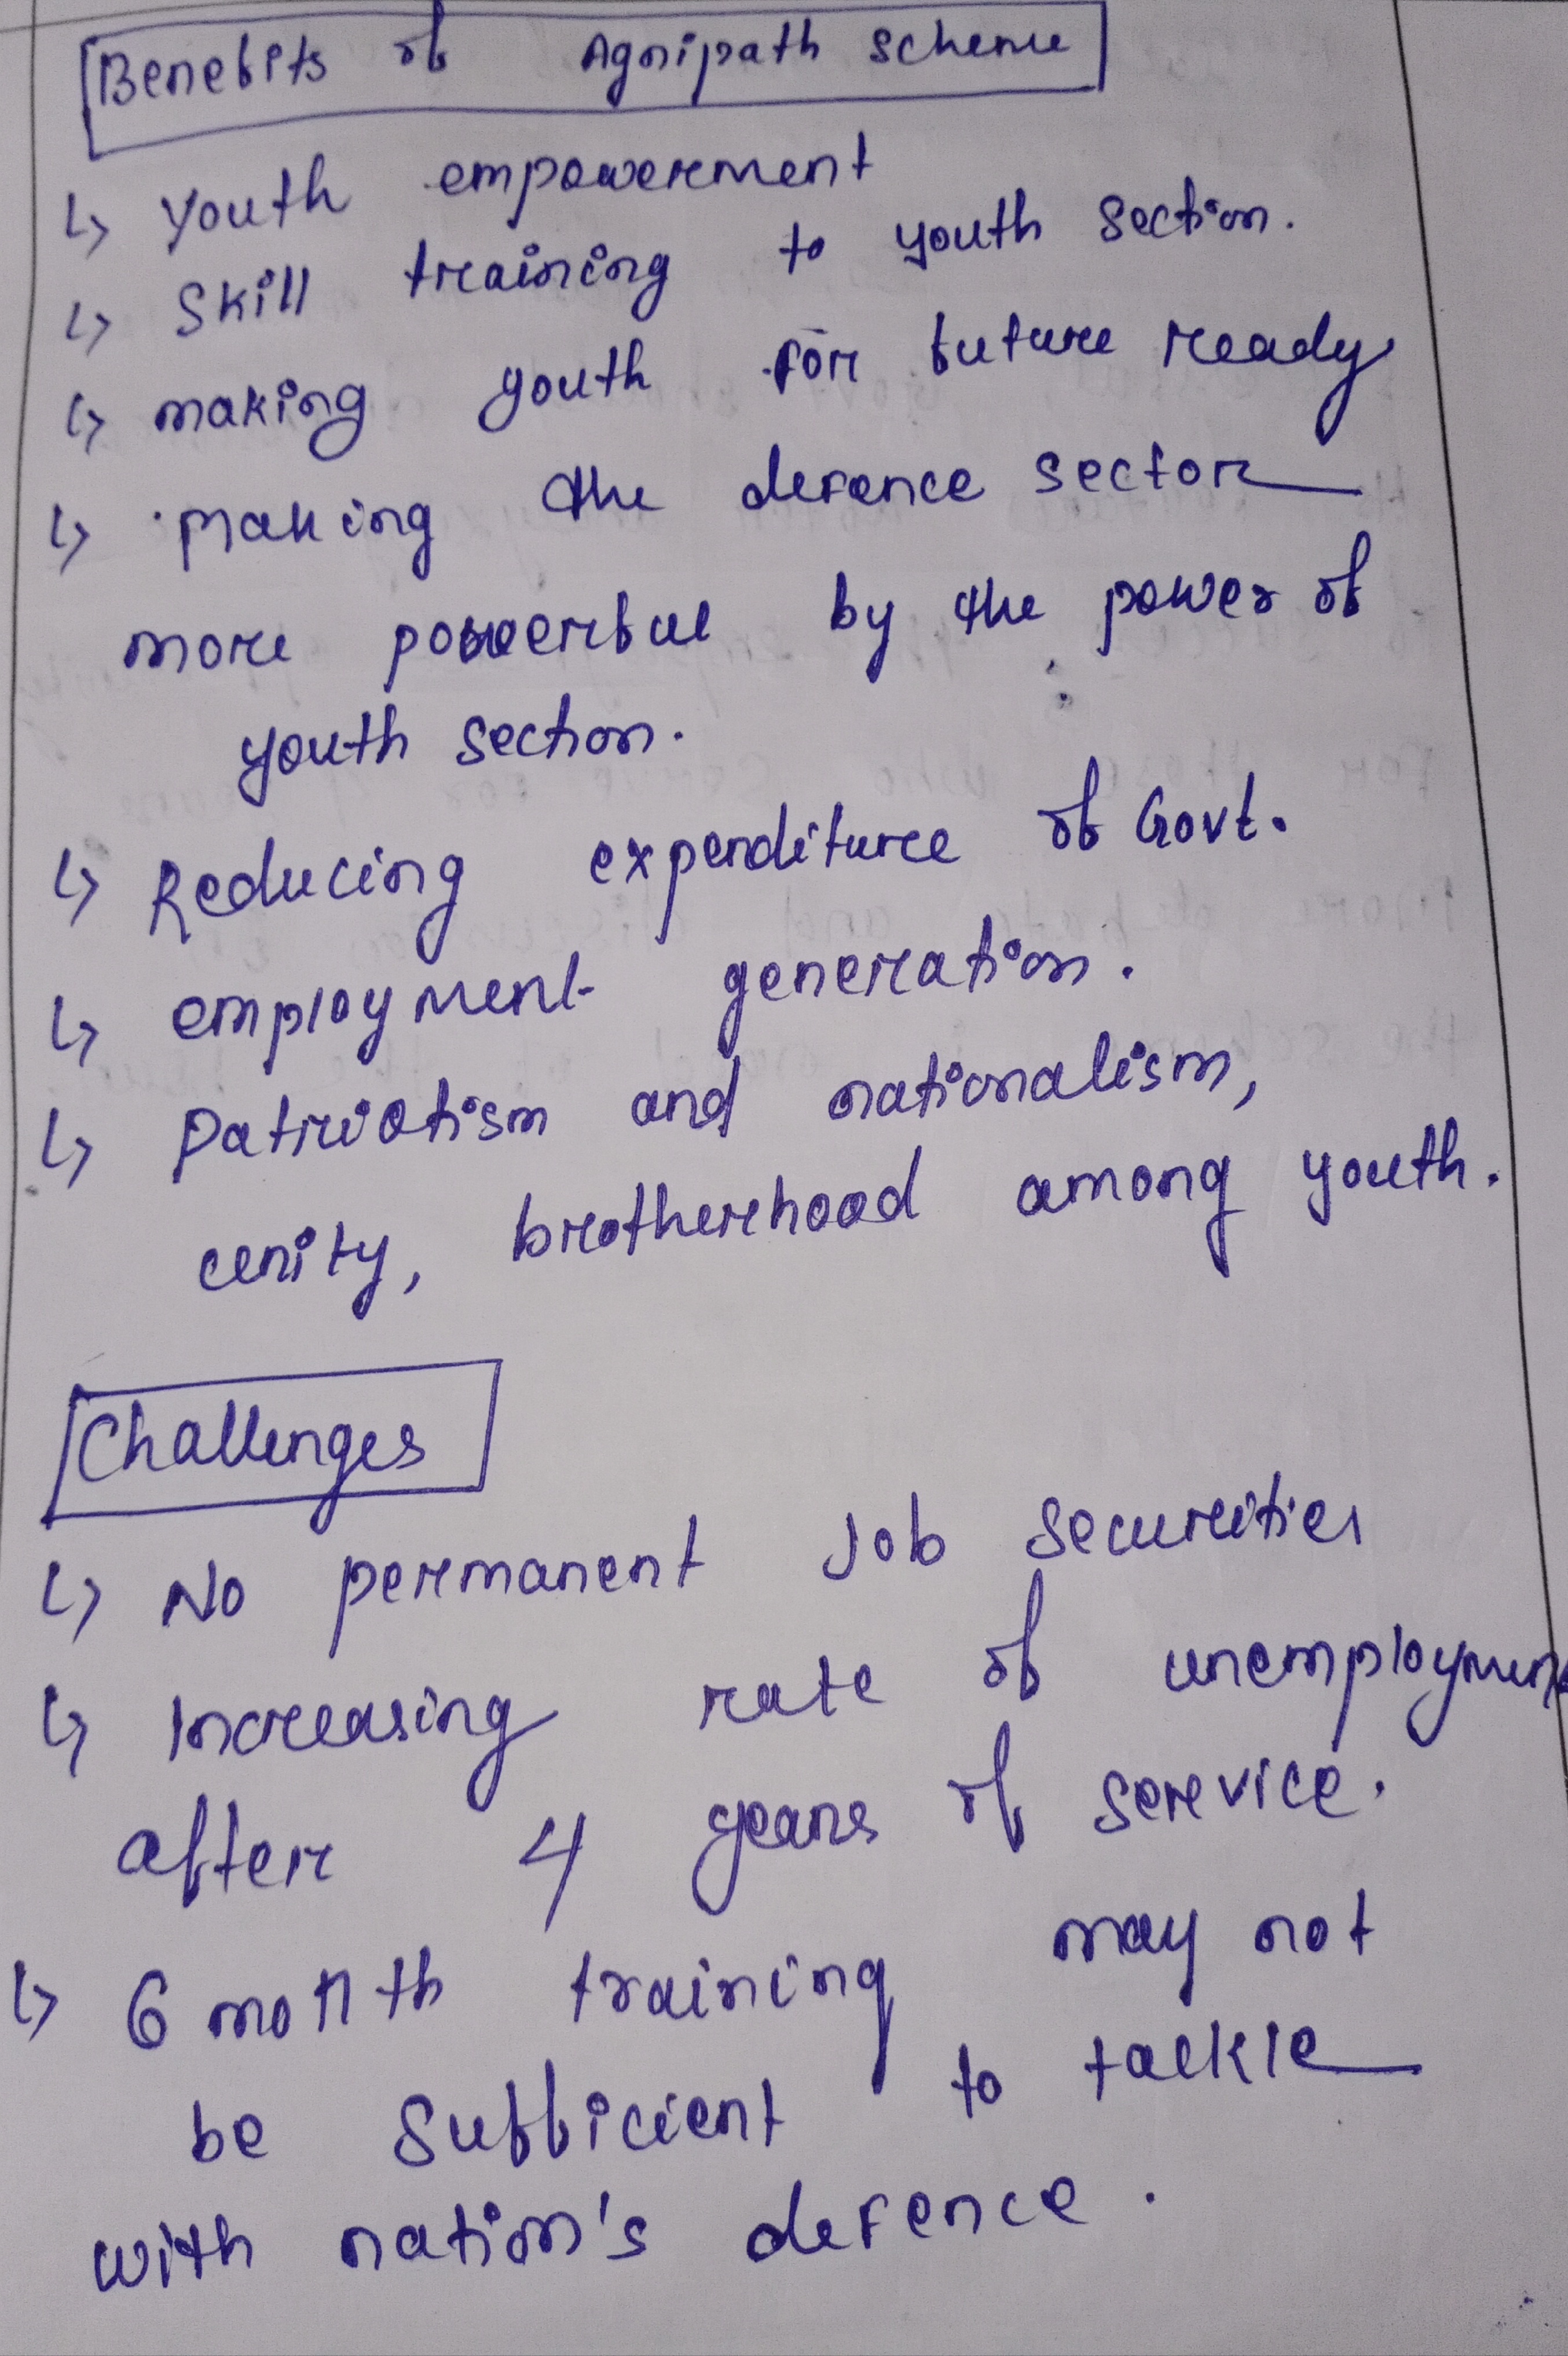 Benefits of Agnipath scheme
↳ Youth empowerment
↳ Skill training to youth section.
↳ making youth for future ready
↳ making the defence sector
more powerful by the power of
youth section.
↳ Reducing expenditure of Govt.
↳ employment generation.
↳ Patriotism and nationalism,
unity, brotherhood among youth.
Challenges
↳ No permanent Job securities
↳ Increasing rate of unemployment
after 4 years of service.
↳ 6 month training may not
be sufficient to tackle
with nation's defence.